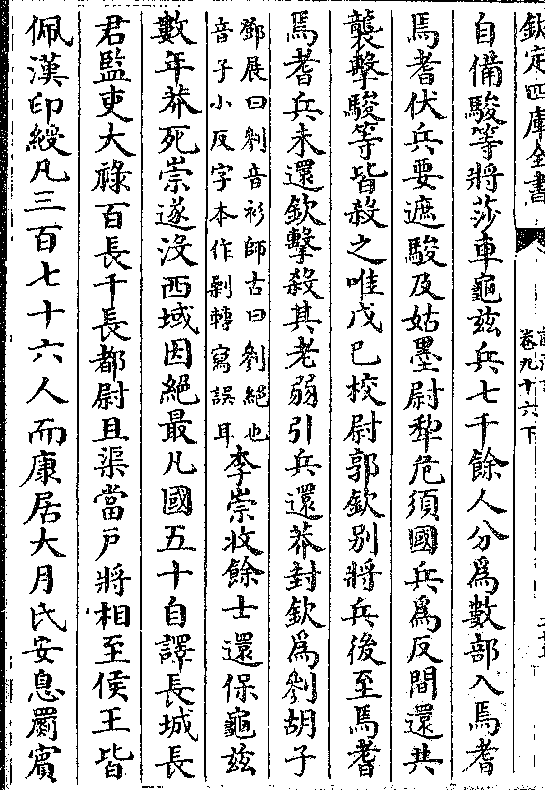 欽定四庫全書
卷九十六下
自備駿等將莎車龜兹兵七千餘人分為數部入焉耆
焉耆伏兵要遮駿及姑墨尉犁危須國兵為反間還共
襲擊駿等皆殺之唯戊巳校尉郭欽别將兵後至焉耆
焉耆兵未還欽擊殺其老弱引兵還莽封欽為劋胡子
鄧展曰劋音衫師古曰劋絶也
音子小反字本作剿轉寫誤耳
李崇收餘士還保龜兹
數年莽死崇遂没西域因絶最凡國五十自譯長城長
君監吏大祿百長千長都尉且渠當戶將相至侯王皆
佩漢印綬凡三百七十六人而康居大月氏安息罽賓